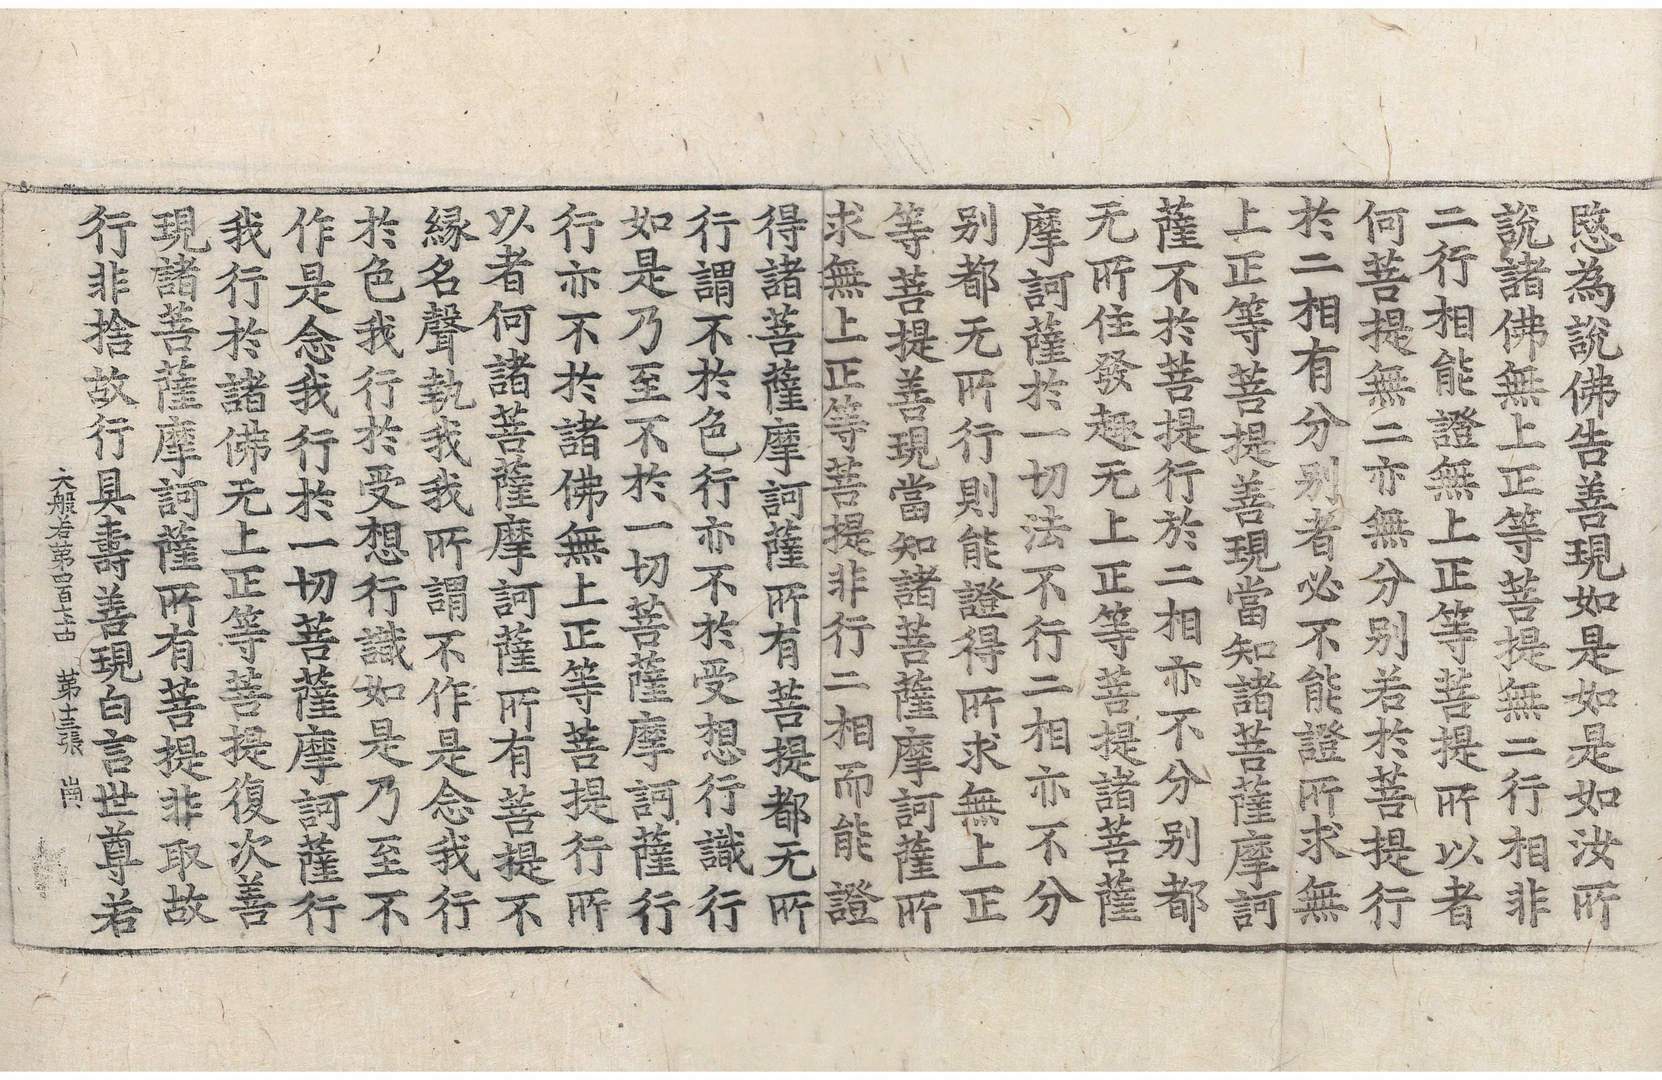 愍為說佛告善現如是如是如汝所
說諸佛無上正等菩提無二行相非
二行相能證無上正等菩提所以者
何菩提無二亦無分别若於菩提行
於二相有分别者必不能證所求無
上正等菩提善現當知諸菩薩摩訶
薩不於菩提行於二相亦不分别都
无所住發趣无上正等菩提諸菩薩
摩訶薩於一切法不行二相亦不分
别都无所行則能證得所求無上正
等菩提善現當知諸菩薩摩訶薩所
求無上正等菩提非行二相而能證
得諸菩薩摩訶薩所有菩提都无所
行謂不於色行亦不於受想行識行
如是乃至不於一切菩薩摩訶薩行
行亦不於諸佛無上正等菩提行所
以者何諸菩薩摩訶薩所有菩提不
緣名聲執我我所謂不作是念我行
於色我行於受想行識如是乃至不
作是念我行於一切菩薩摩訶薩行
我行於諸佛无上正等菩提復次善
現諸菩薩摩訶薩所有菩提非取故
行非捨故行具壽善現白言世尊若
大般若第四百七十四 第十三張 崗